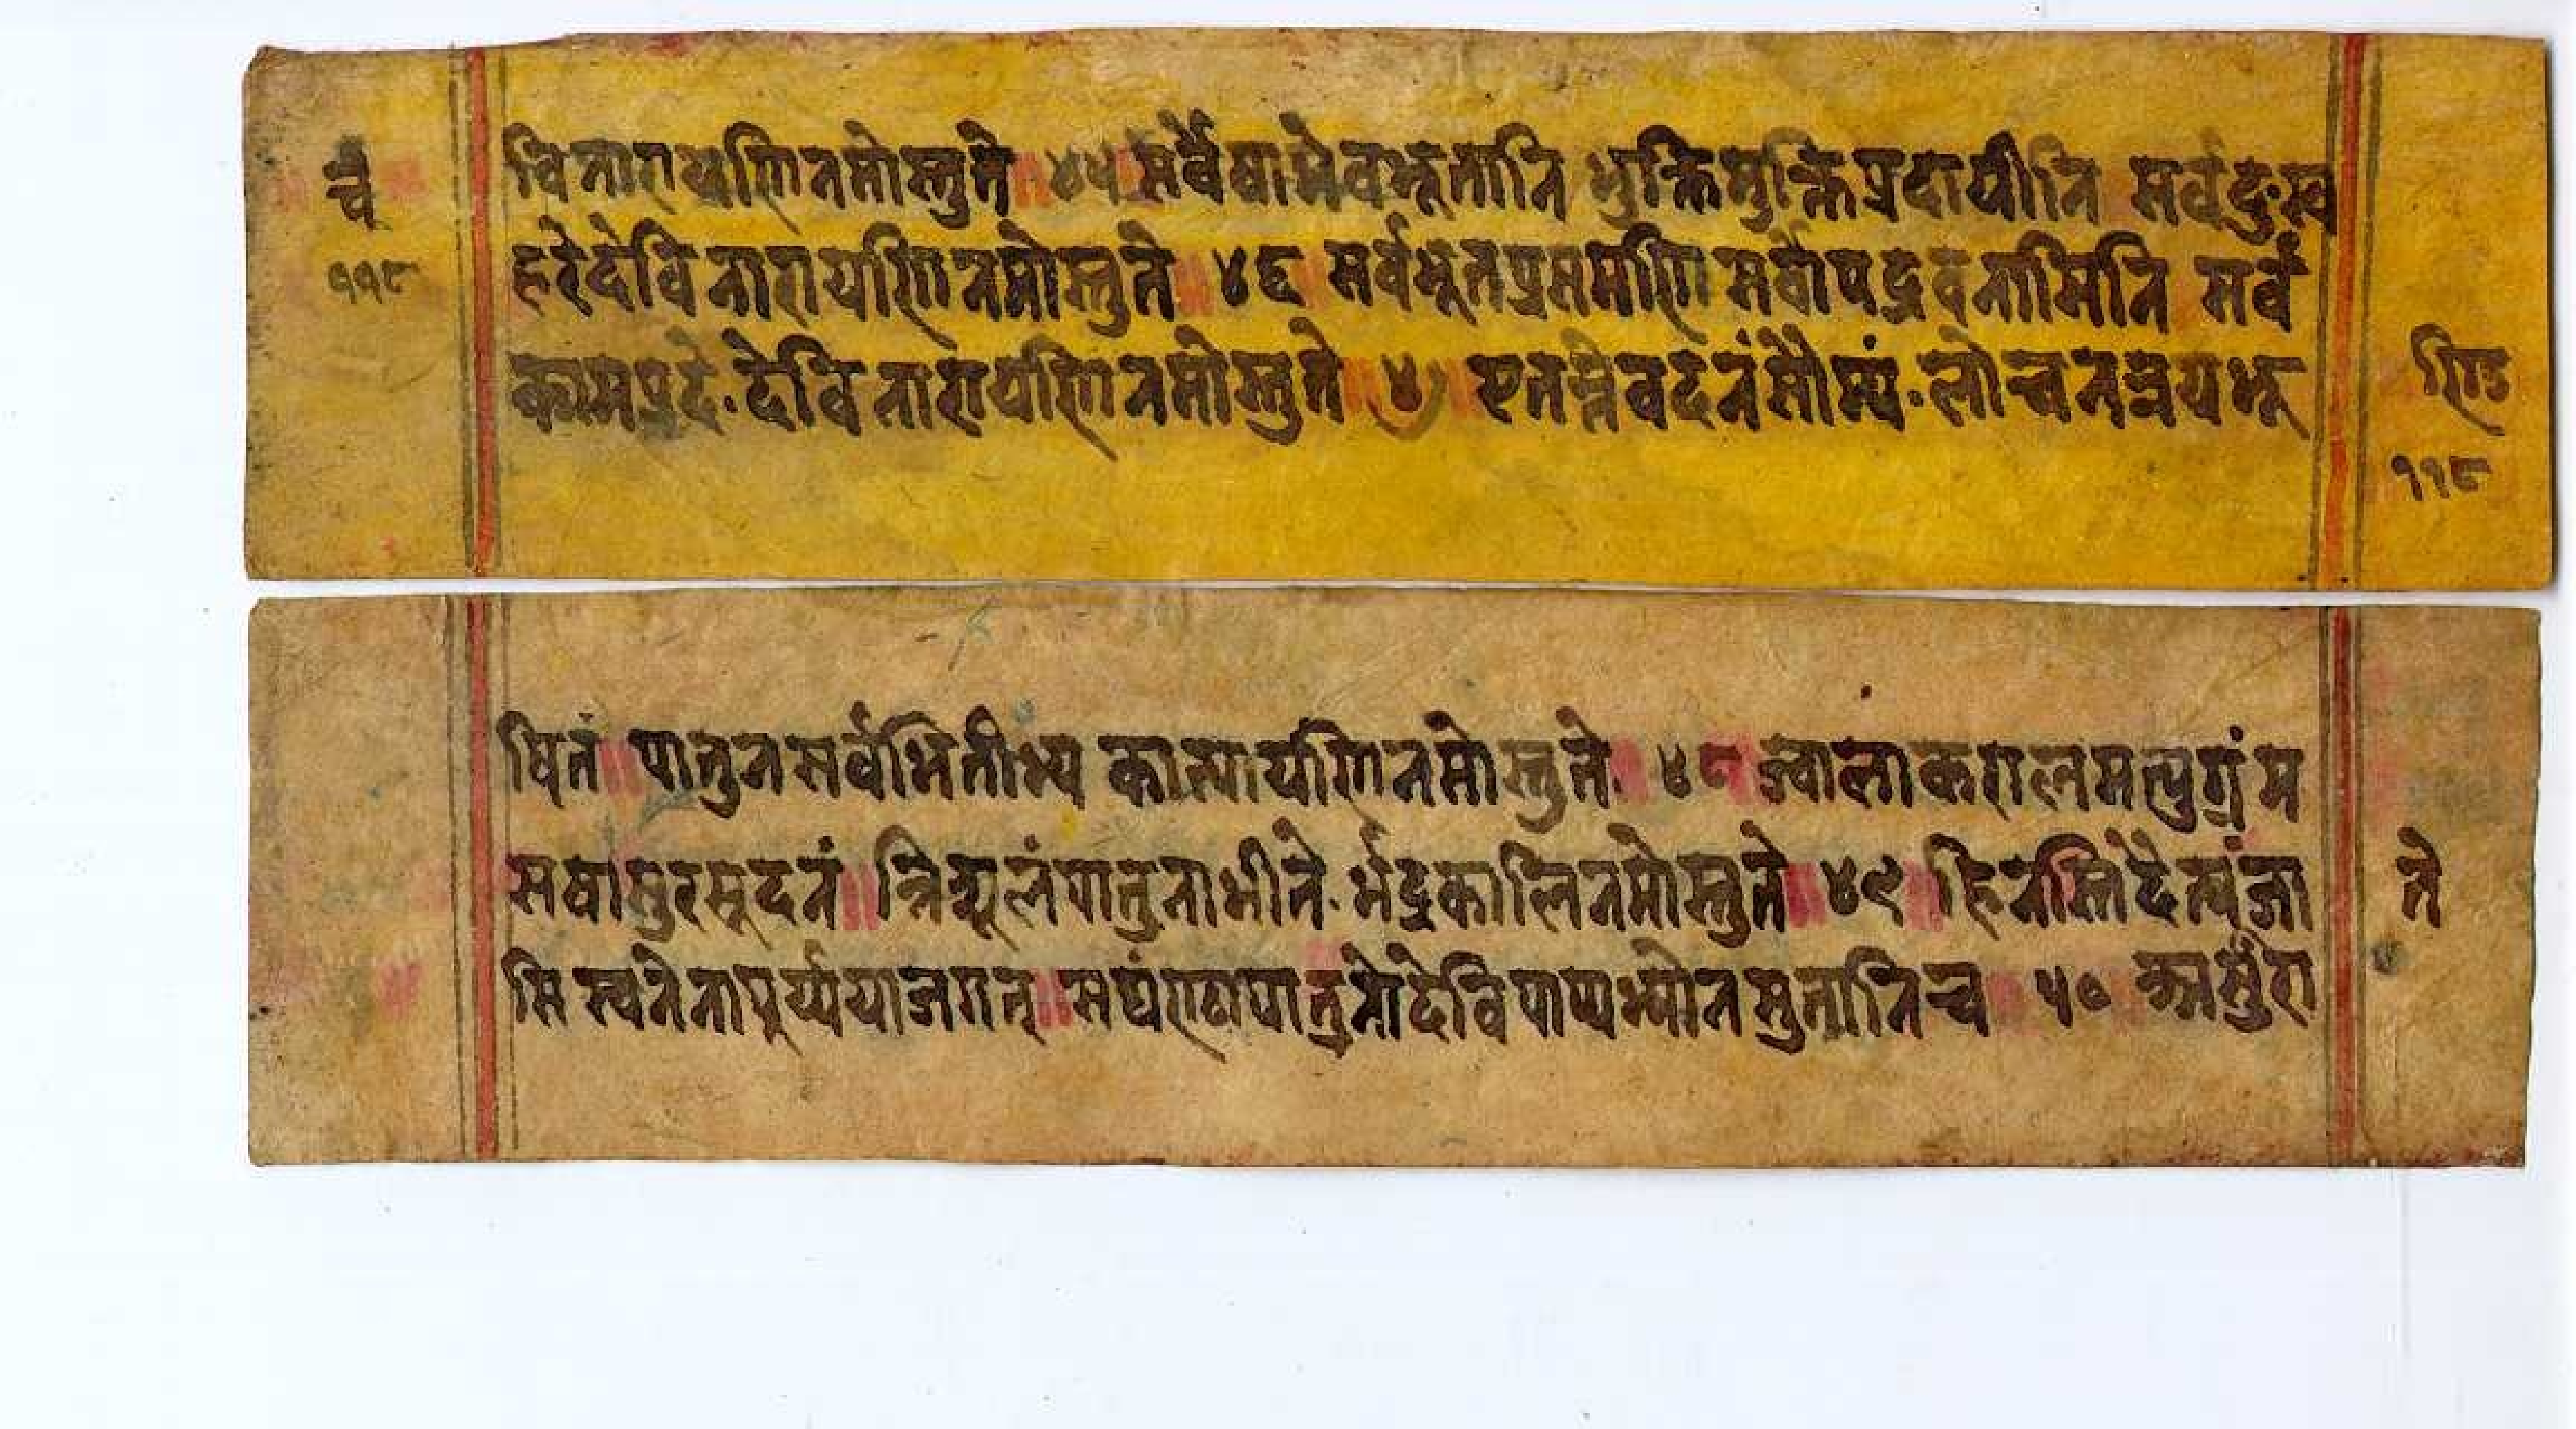 चं
११८
वि नारायणि नमोस्तुते ॥ ४५ ॥ सर्वेषामेवभूतानि भुक्तिमुक्तिप्रदायीनि सर्वदुःख
हरेदेवि नारायणि नमोस्तुते ॥ ४६ ॥ सर्वभूतप्रसमाणि सर्वोपद्रवनासिनि सर्व
कामप्रदे देवि नारायणि नमोस्तुते ॥ ४७ ॥ एतत्तेवदनंसौम्यं लोचनत्रयभू
णिड
११८
षितं ॥ पातुनसर्वभितीभ्य कात्यायणि नमोस्तुते ॥ ४८ ॥ ज्वालाकरालमत्युग्रंम
सषासुरसूदनं ॥ त्रिशूलंपातुनाभीते र्भद्रकालिनमोस्तुते ॥ ४९ ॥ हिनस्तिदैत्यंजा
ते
सि स्वनेनापूर्य्ययाजगत् ॥ सघंण्टापातुनोदेवि पाप्यभ्योनसुतानिच ॥ ५० ॥ असुंरा